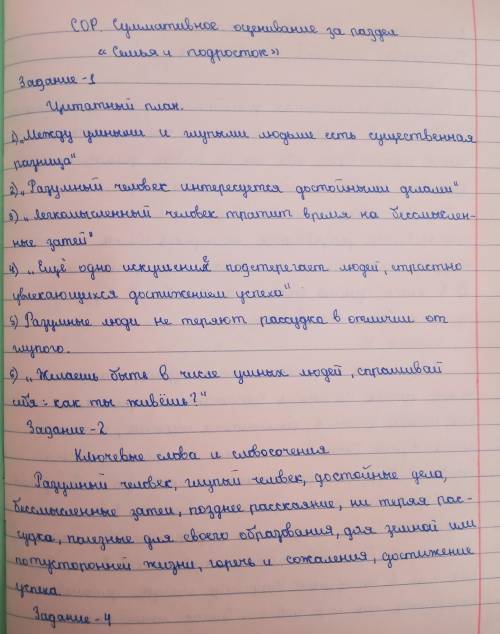 СОР. Суммативное оценивание за раздел
«Семья и подросток»
Задание -1
Цитатный план.
1) „Между умными и глупыми людьми есть существенная
разница“
2) „Разумный человек интересуется достойными делами“
3) „Легкомысленный человек тратит время на бессмыслен-
ные затеи“
4) „Ещё одно искушение подстерегает людей, страстно
увлекающихся достижением успеха“
5) Разумные люди не теряют рассудка в отличии от
глупого.
6) „Желаешь быть в числе умных людей, спрашивай
себя: как ты живёшь?“
Задание -2
Ключевые слова и словосочения
Разумный человек, глупый человек, достойные дела,
бессмысленные затеи, позднее расскаяние, ни теряя рас-
судка, полезные для своего образования, для земной или
потусторонней жизни, горечь и сожаления, достижение
успеха
Задание -4